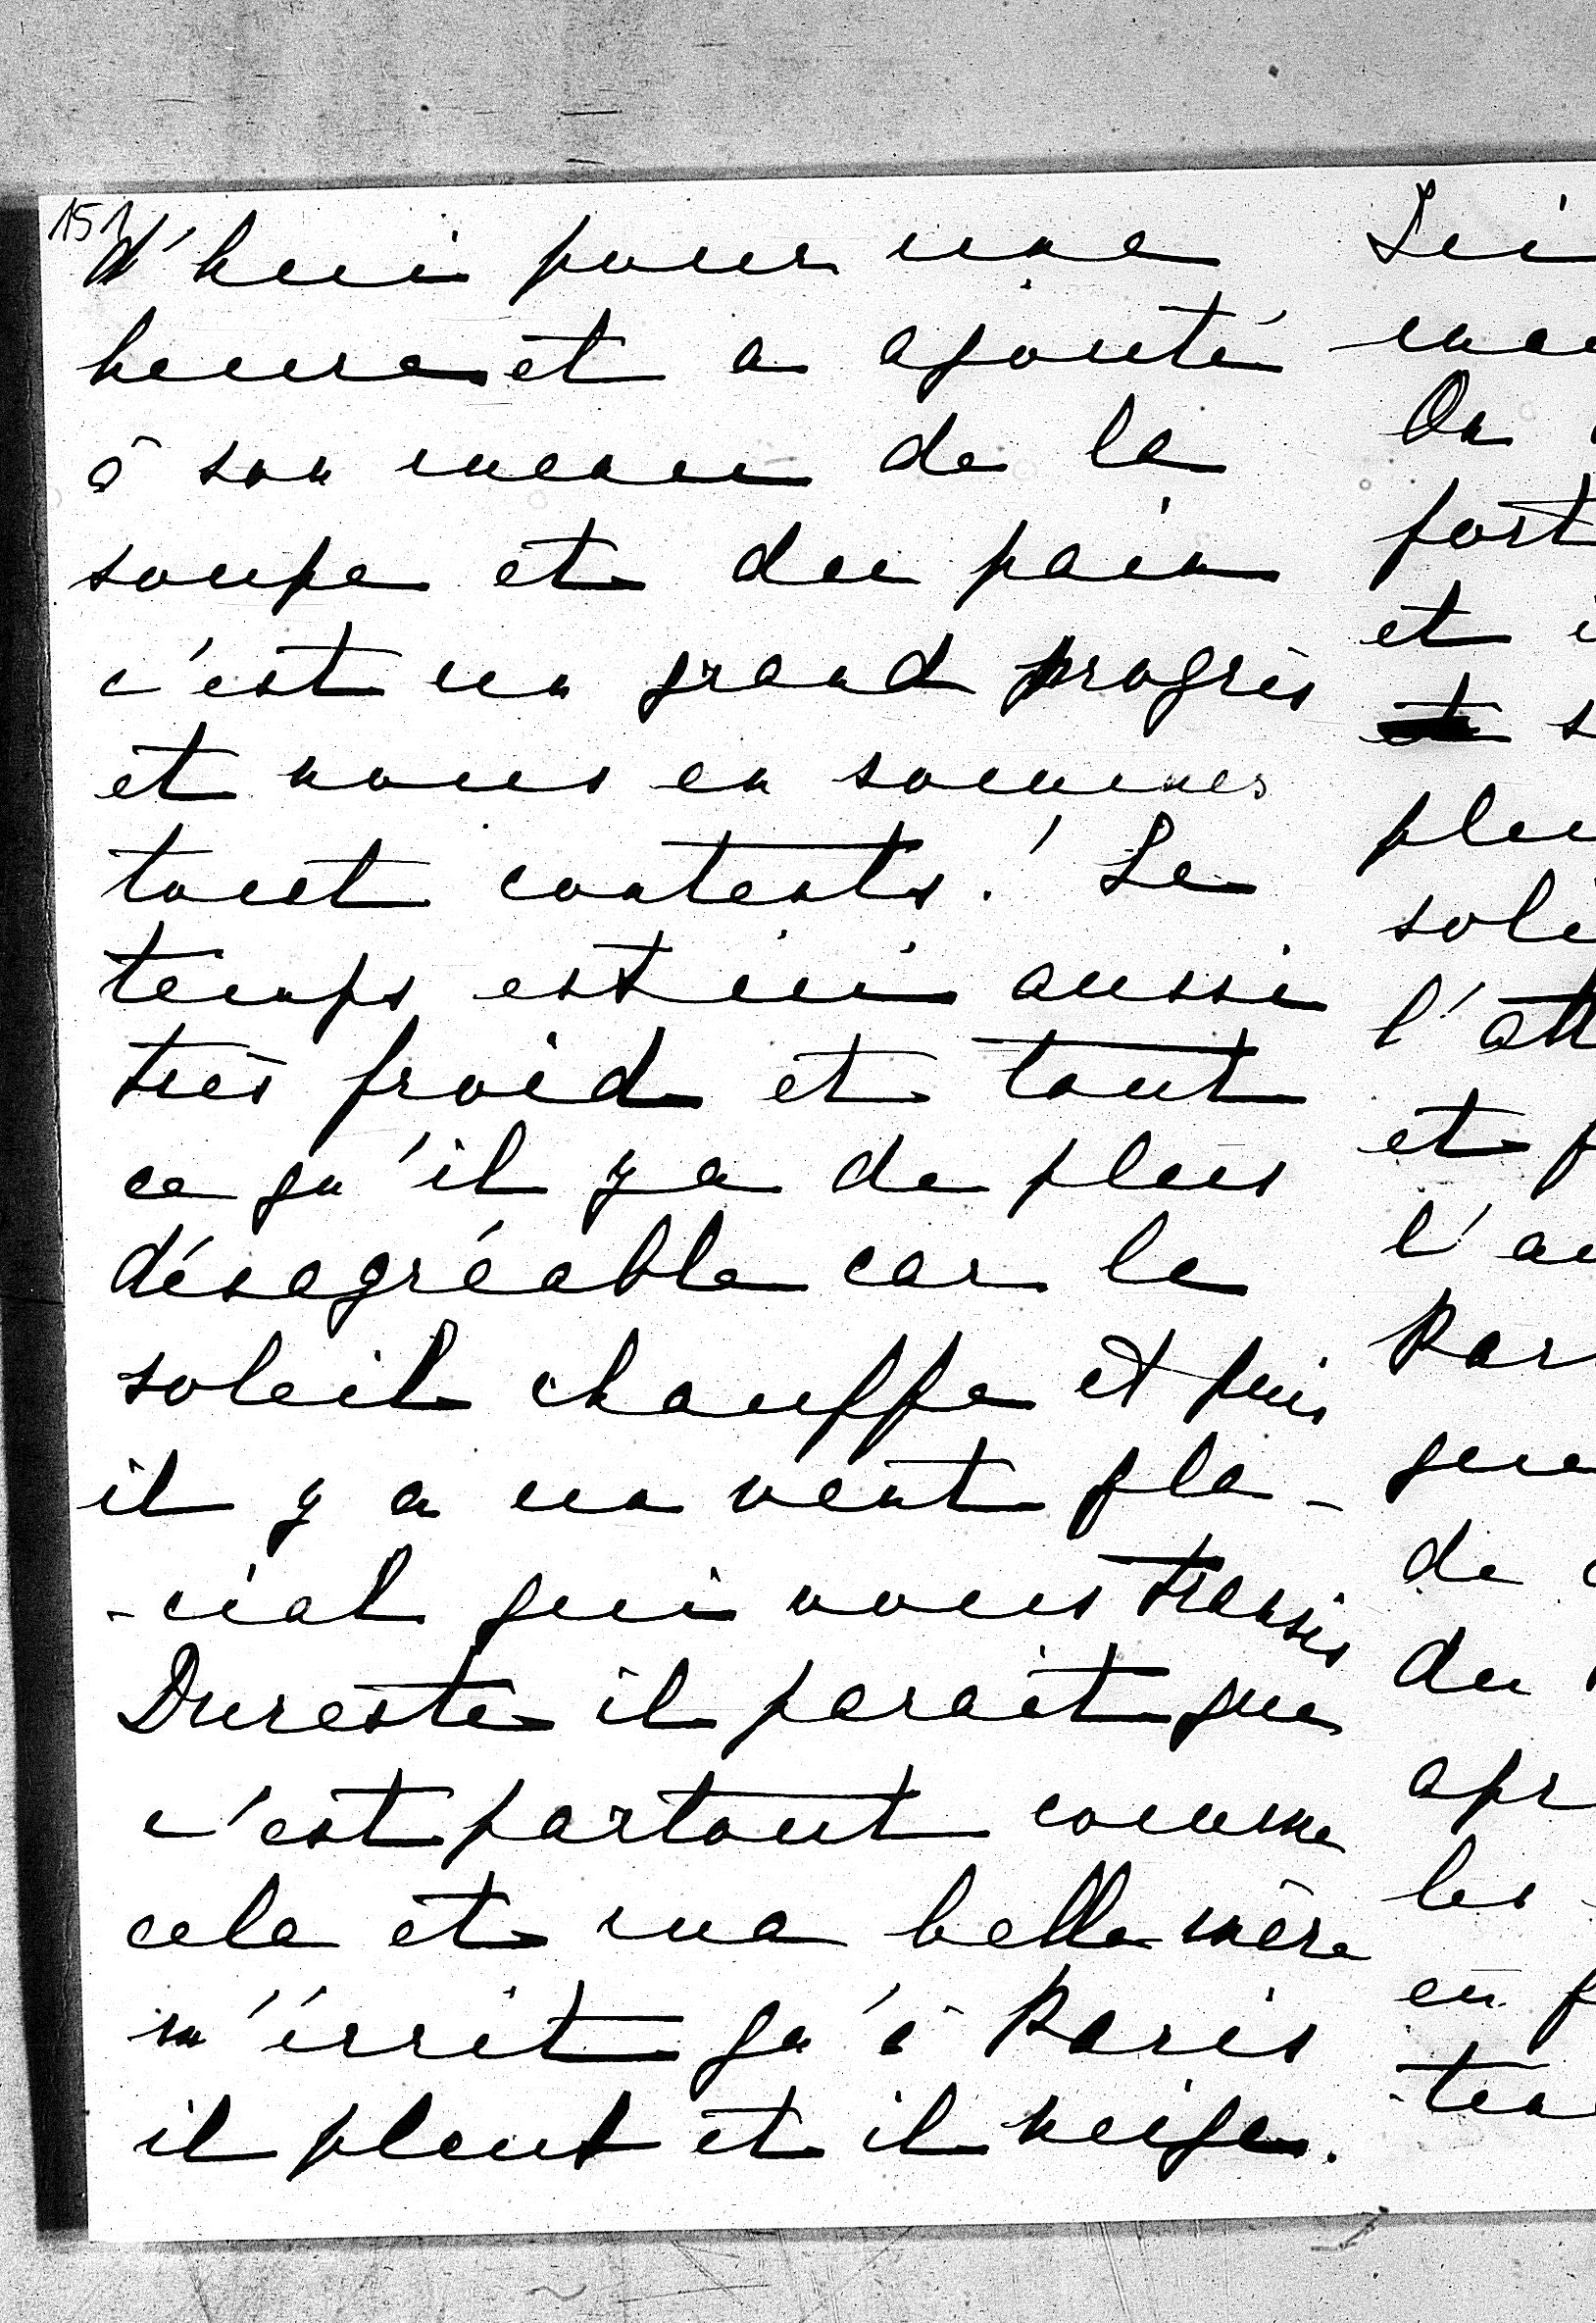 151
d'hui pour une
heure et a ajouté
à son menu de la
soupe et du pain
c'est un grand progrès
et nous en sommes
tout contents! Le
temps est ici aussi
très froid et tout
ce qu'il y a de plus
désagréable car le
soleil chauffe et puis
il y a un vent gla-
-cial qui vous transis
Dureste il parait que
c'est partout comme
cela et ma belle mère
m'écrit qu'à Paris
il pleut et il neige.
On
fort
et
et s
plu
sole
l'att
et p
l'au
Par
de
du
apr
les
en p